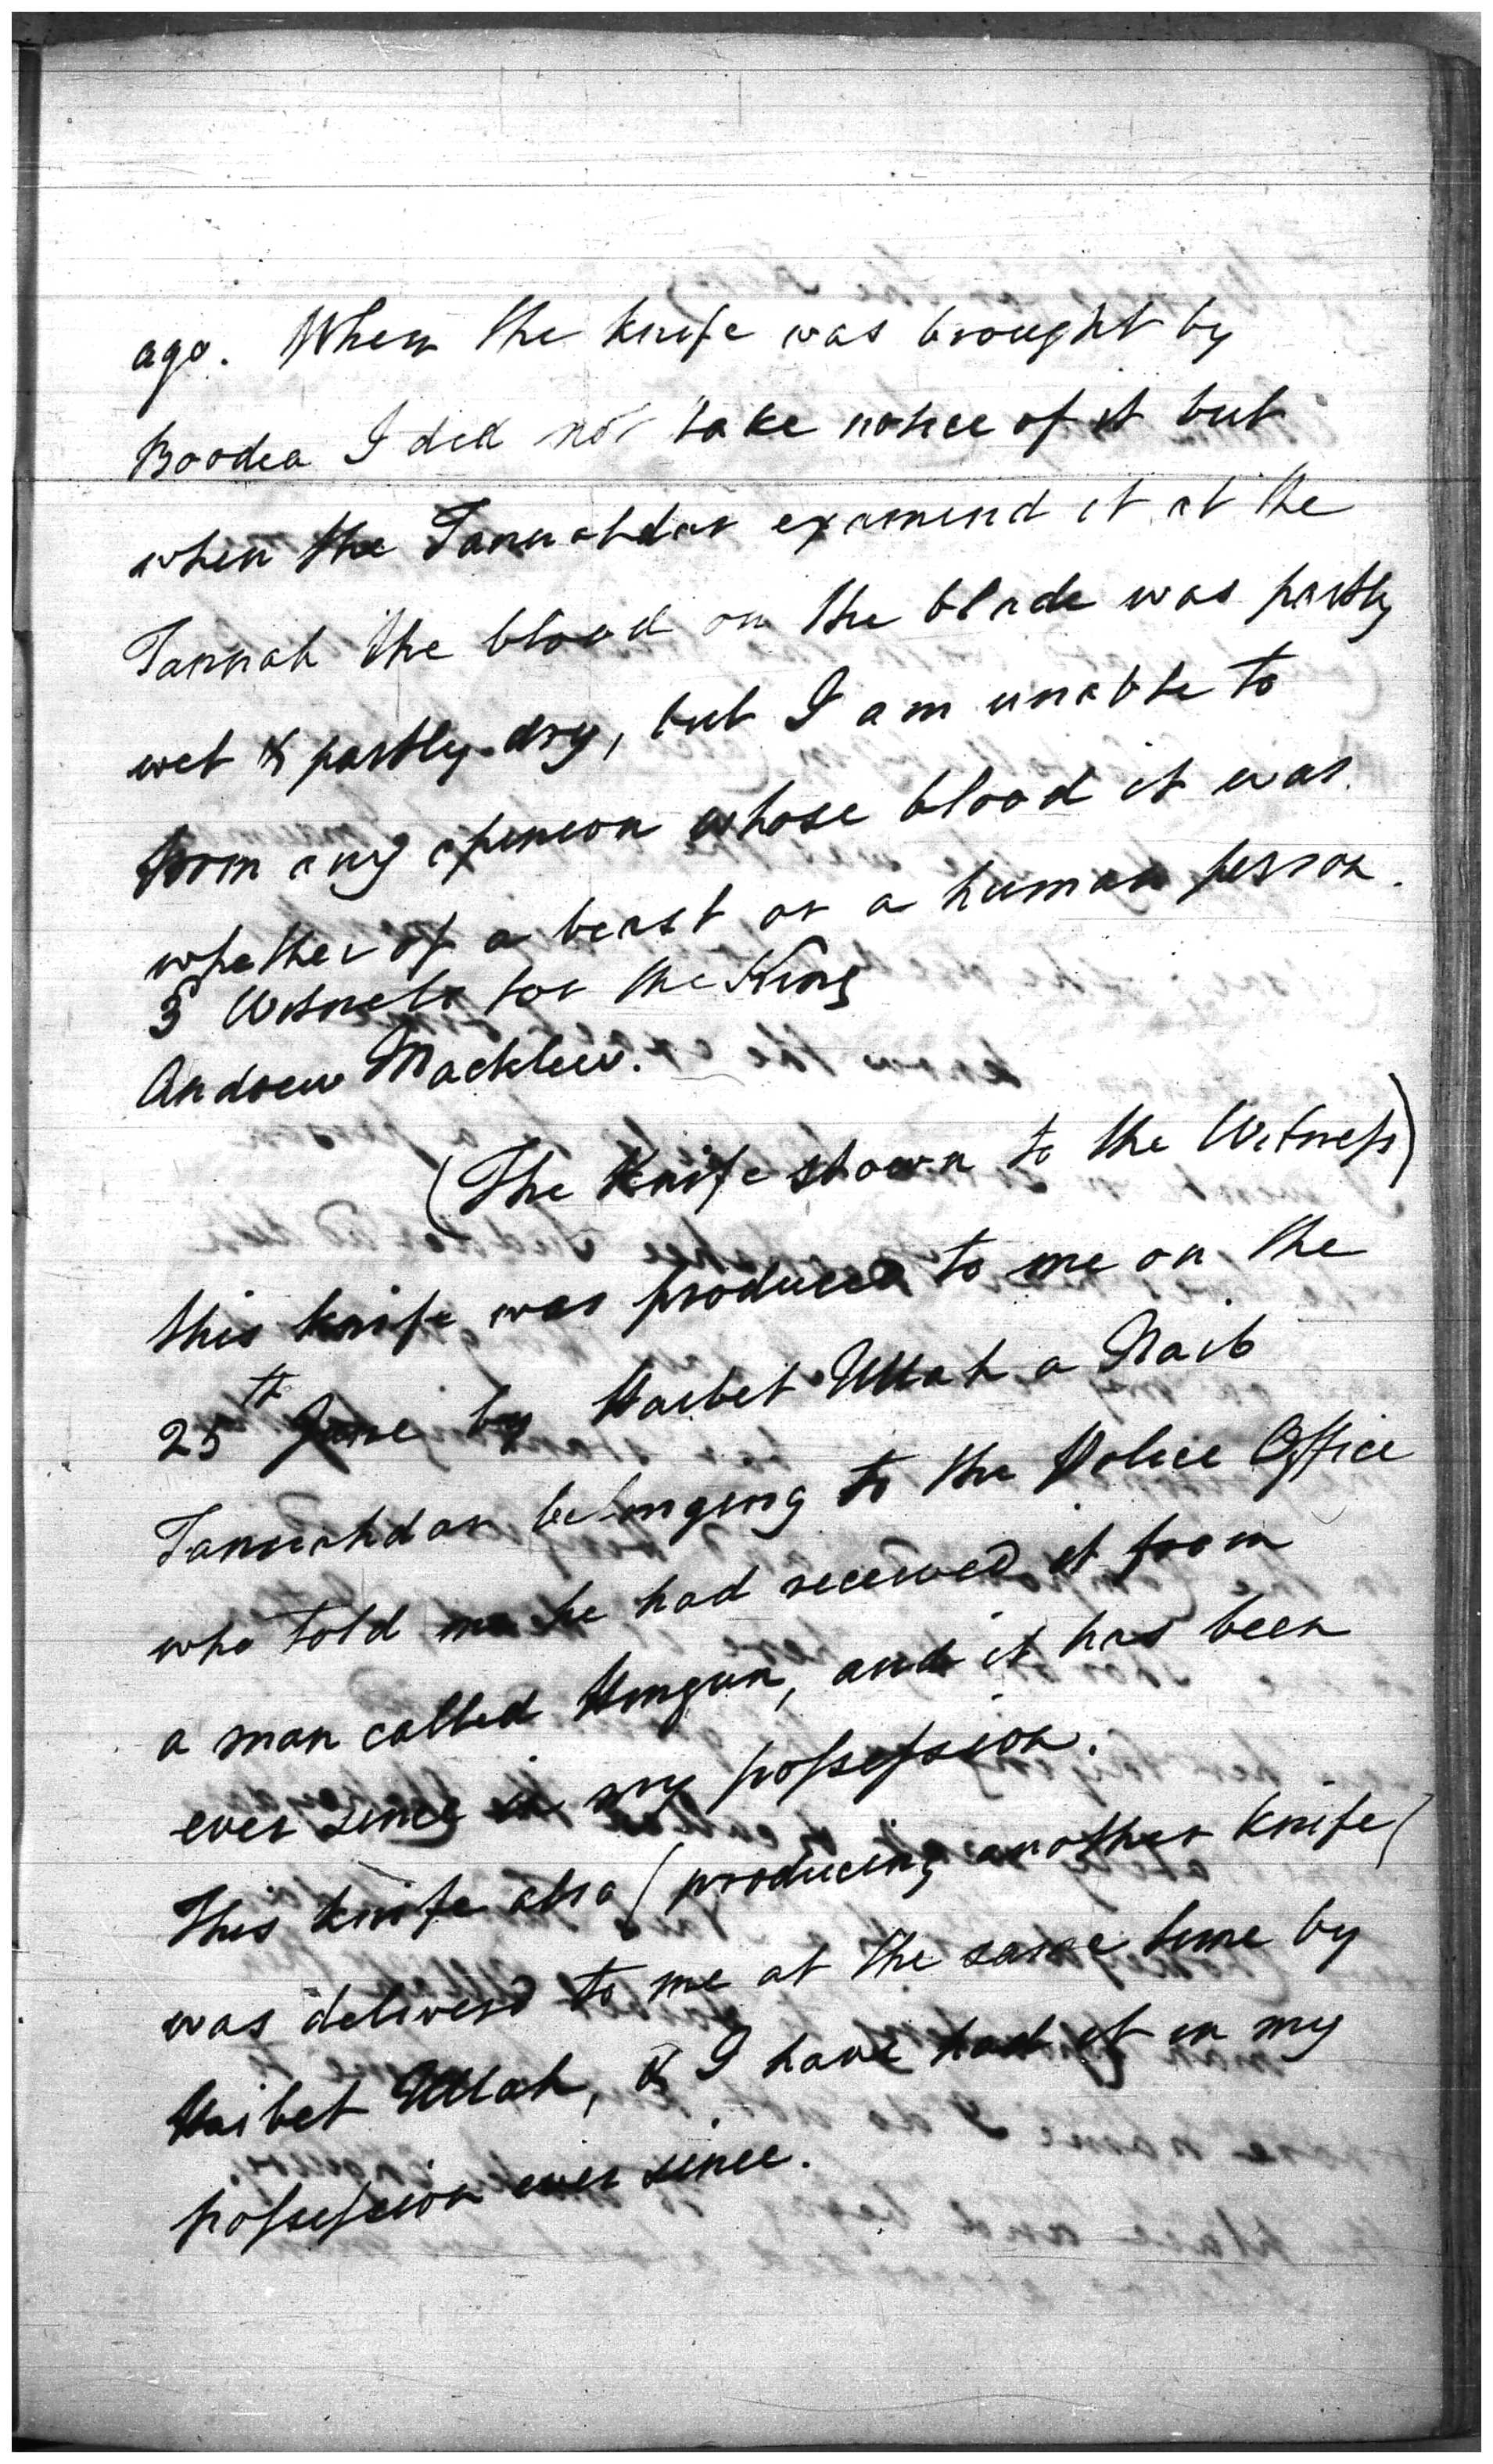 ago. When the knife was brought by
Boodea I did not take notice of it but
when the Tannahdar examind it at the
Tannah the blood on the blade was partly
wet & partly dry, but I am unable to
form any opinion whose blood it was
whether of a beast or a human person.
3 Witness for the King
Andrew Macklew.
(The Knife shown to the Witness)
this knife was produced to me on the
25th June by Haibet Ullah a Naib
Tannahdar belonging to the Police Office
who told me he had received it from
a man called Hingun, and it has been
ever since in my possession.
This knife also (producing another knife)
was deliverd to me at the same time by
Haibet Ullah, & I have had it in my
possession ever since.